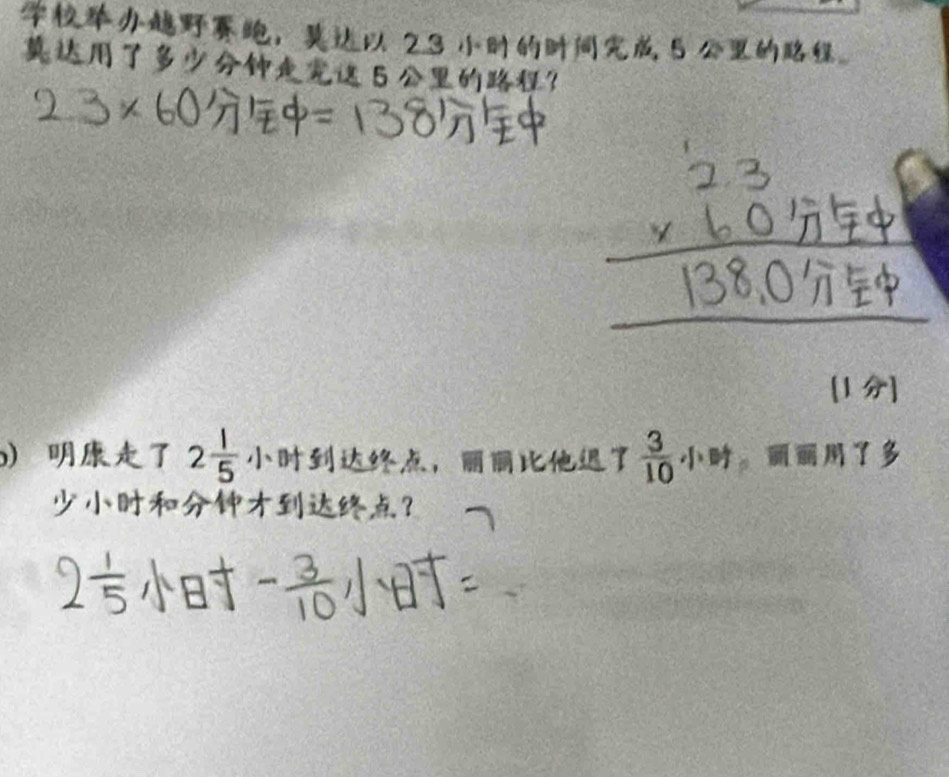 学校举办越野赛跑，莫达以 2.3 小时的时间完成 5 公里的路程。
莫达用了多少分钟走完这 5 公里的路程？
2.3 × 60分钟 = 138分钟
2.3
× 60分钟
138.0分钟
[1 分]
b) 明康走了 2 1/5 小时到达终点，丽丽比他迟了 3/10 小时。丽丽用了多
少小时和分钟才到达终点？
2 1/5 小时 - 3/10 小时 =